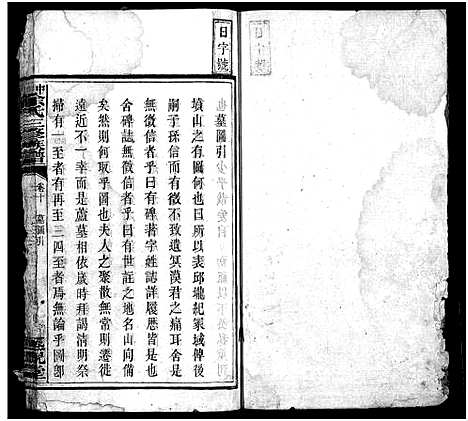 日字號
墓圖引
墳山之有圖何也曰所以表邱壠紀冢域俾後
嗣子孫信而有徵不致遺冥漠君之痛耳舍是
無徵信者乎曰有碑著字姓誌詳履歷皆是也
舍碑誌無徵信者乎曰有世註之地名山向備
矣然則何取乎圖曰夫人之聚散無常則遷徙
遠近不一幸而廬墓相依歲時拜謁清明祭
掃有一至者有再至三四至者焉無論乎圖卽
三修族譜
卷十
墓圖引